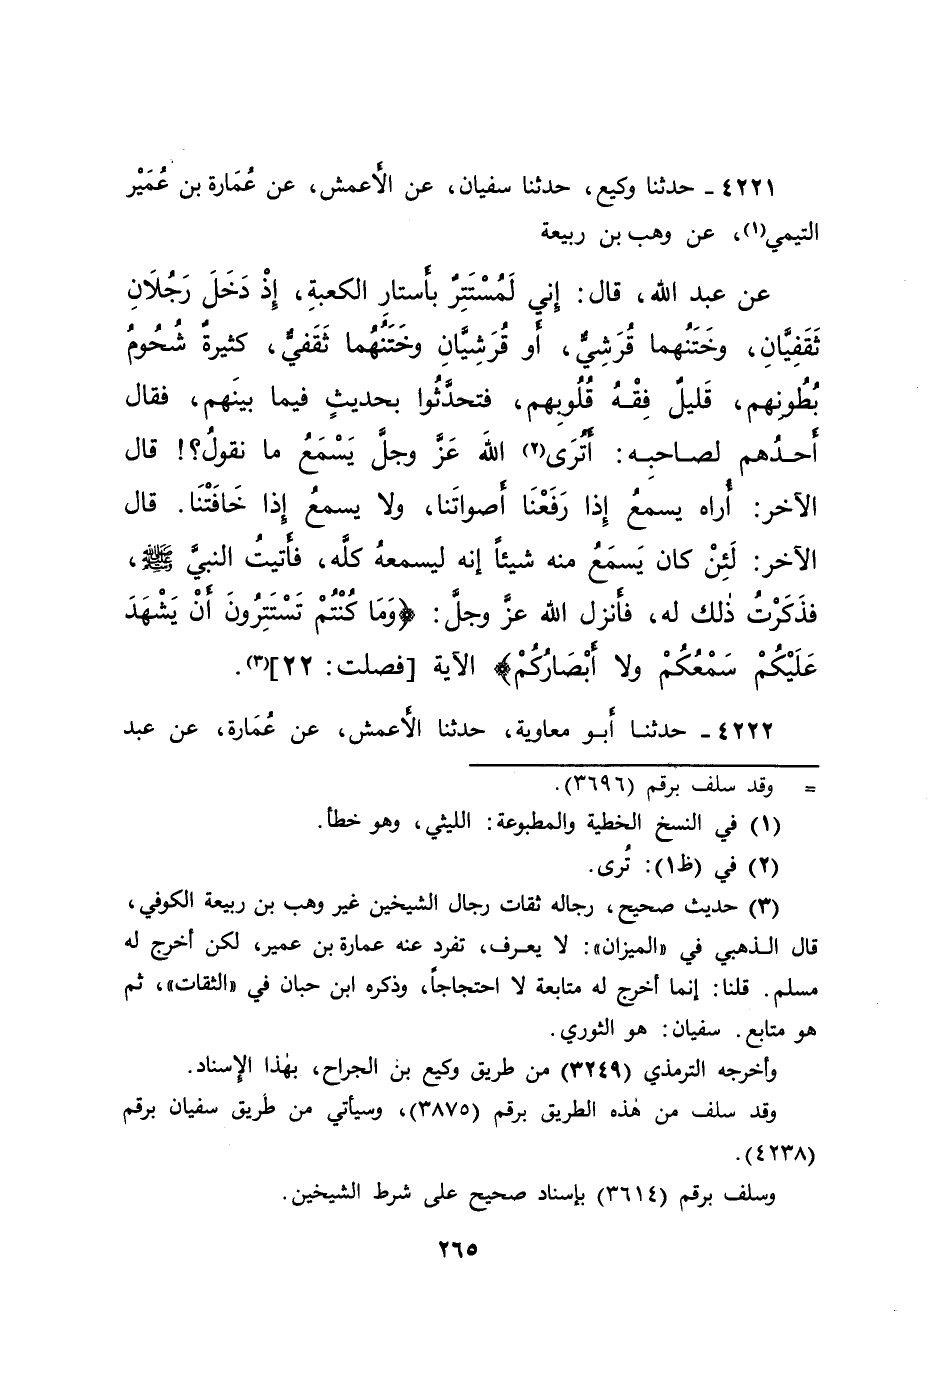 ٤٢٢١ ـ حدثنا وكيع، حدثنا سفيان، عن الأعمش، عن عُمَارة بن عُمَيْر
التيمي(١)، عن وهب بن ربيعة
عن عبد الله، قال: إني لَمُسْتَتِرٌ بأستارِ الكعبةِ، إِذْ دَخَلَ رَجُلَانِ
ثَقَفِيَّانِ، وخَتَنُهما قُرَشِيٌّ، أَو قُرَشِيَّانِ وخَتَنُهُما ثَقَفيٌّ، كثيرةٌ شُحُومُ
بُطُونِهم، قَليلٌ فِقْهُ قُلُوبِهم، فتحدَّثُوا بحديثٍ فيما بينَهم، فقال
أَحدُهم لصاحبِه: أَتُرَى(٢) اللهَ عَزَّ وجلَّ يَسْمَعُ ما نقولُ؟! قال
الآخر: أُراه يسمعُ إِذا رَفَعْنَا أَصواتَنا، ولا يسمعُ إِذا خَافَتْنَا. قال
الآخر: لَئِنْ كان يَسمَعُ منه شيئاً إنه ليسمعهُ كلَّه، فأَتيتُ النبيَّ ﷺ،
فذَكَرْتُ ذٰلك له، فأَنزل الله عزَّ وجلَّ: ﴿وَمَا كُنْتُمْ تَسْتَتِرُونَ أَنْ يَشْهَدَ
عَلَيْكُمْ سَمْعُكُمْ ولا أَبْصَارُكُمْ﴾ الآية [فصلت: ٢٢](٣).
٤٢٢٢ ـ حدثنا أَبو معاوية، حدثنا الأَعمش، عن عُمَارة، عن عبد
= وقد سلف برقم (٣٦٩٦).
(١) في النسخ الخطية والمطبوعة: الليثي، وهو خطأ.
(٢) في (ظ١): تُرى.
(٣) حديث صحيح، رجاله ثقات رجال الشيخين غير وهب بن ربيعة الكوفي،
قال الذهبي في «الميزان»: لا يعرف، تفرد عنه عمارة بن عمير، لكن أخرج له
مسلم. قلنا: إنما أخرج له متابعة لا احتجاجاً، وذكره ابن حبان في «الثقات»، ثم
هو متابع. سفيان: هو الثوري.
وأخرجه الترمذي (٣٢٤٩) من طريق وكيع بن الجراح، بهٰذا الإسناد.
وقد سلف من هٰذه الطريق برقم (٣٨٧٥)، وسيأتي من طريق سفيان برقم
(٤٢٣٨).
وسلف برقم (٣٦١٤) بإسناد صحيح على شرط الشيخين.
٢٦٥